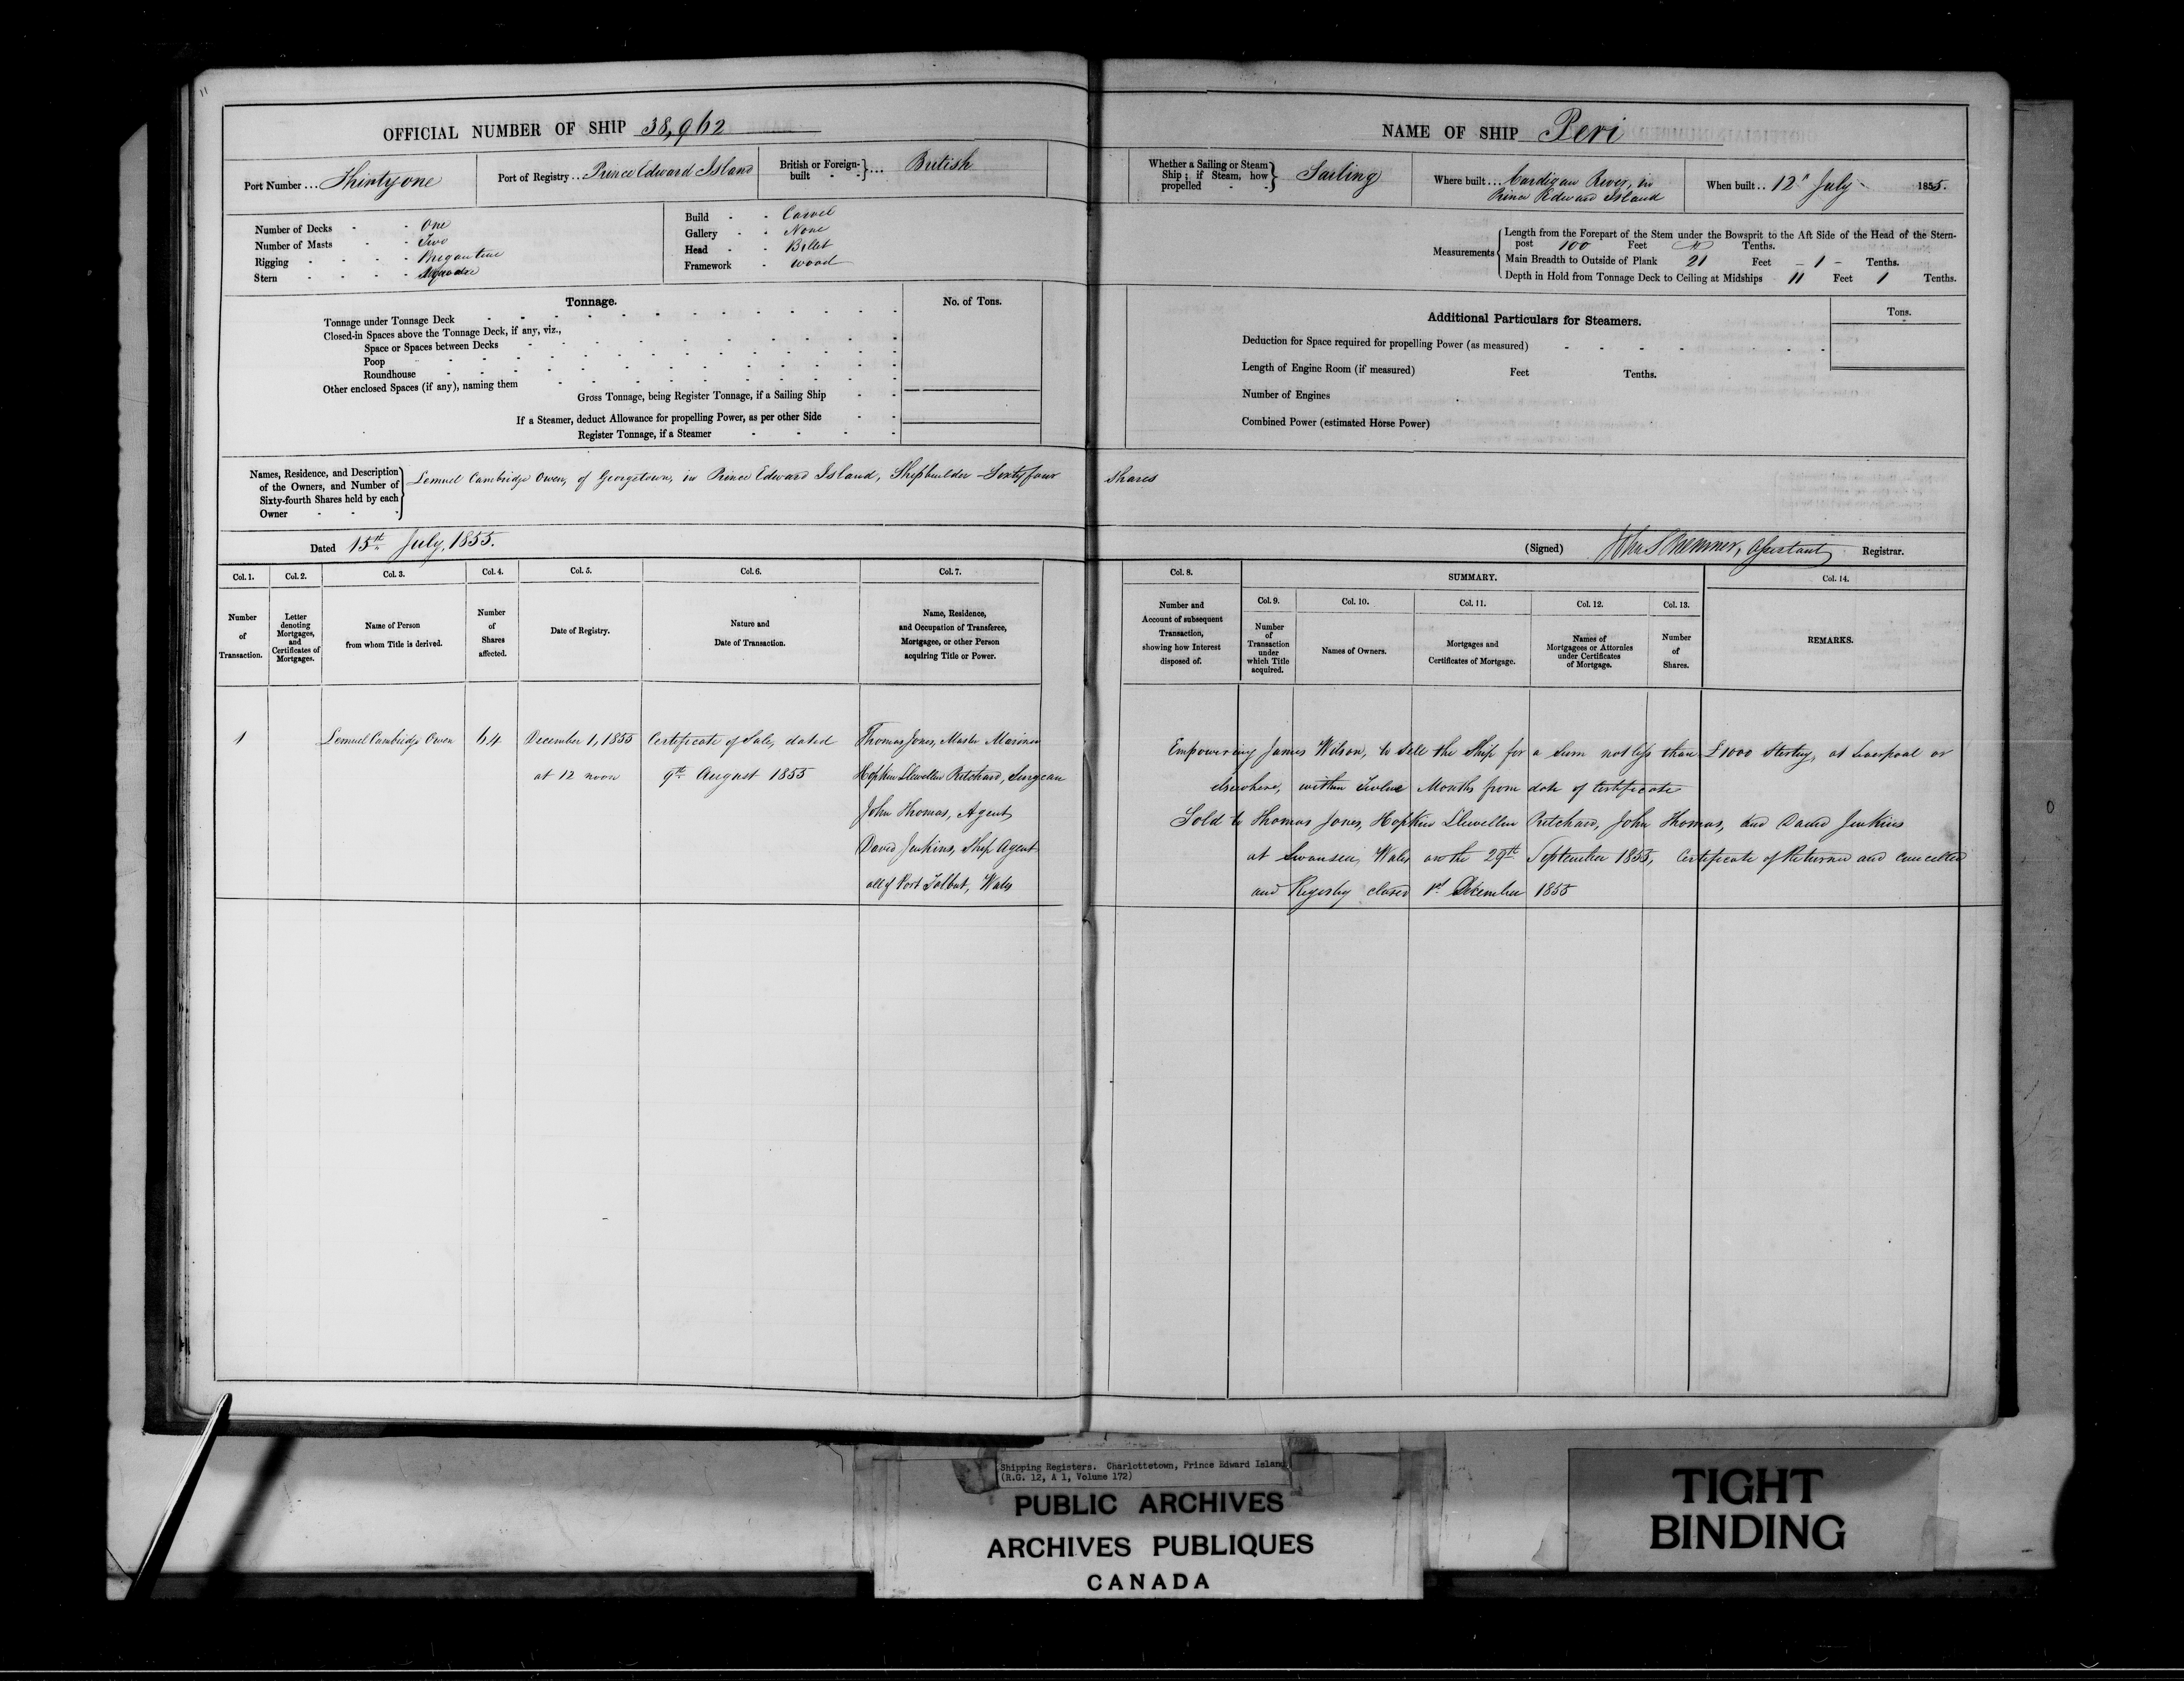 11
OFFICIAL NUMBER OF SHIP 38,962
Port Number ... Thirty one
Port of Registry ... Prince Edward Island
British or Foreign-built } ... British
Number of Decks - - One
Number of Masts - - Two
Rigging - - - - Brigantine
Stern - - - - Square
Build - - Carvel
Gallery - - None
Head - - Billet
Framework - wood
Tonnage.
No. of Tons.
Tonnage under Tonnage Deck
Closed-in Spaces above the Tonnage Deck, if any, viz.,
Space or Spaces between Decks
Poop
Roundhouse
Other enclosed Spaces (if any), naming them
Gross Tonnage, being Register Tonnage, if a Sailing Ship
If a Steamer, deduct Allowance for propelling Power, as per other Side
Register Tonnage, if a Steamer
NAME OF SHIP Peri
Whether a Sailing or Steam Ship; if Steam, how propelled } Sailing
Where built ... Cardigan River, in
Prince Edward Island
When built .. 12" July 1855.
Measurements
Length from the Forepart of the Stem under the Bowsprit to the Aft Side of the Head of the Stern-
post 100 Feet Tenths.
Main Breadth to Outside of Plank 21 Feet - 1 - Tenths.
Depth in Hold from Tonnage Deck to Ceiling at Midships 11 Feet 1 Tenths.
Additional Particulars for Steamers.
Tons.
Deduction for Space required for propelling Power (as measured)
Length of Engine Room (if measured) Feet Tenths.
Number of Engines
Combined Power (estimated Horse Power)
Names, Residence, and Description
of the Owners, and Number of
Sixty-fourth Shares held by each
Owner
Lemuel Cambridge Owen, of Georgetown, in Prince Edward Island, Shipbuilder Sixty four shares
Dated 15th July, 1855.
(Signed) Assistant Registrar.
Col. 1.
Col. 2.
Col. 3.
Col. 4.
Col. 5.
Col. 6.
Col. 7.
Number
of
Transaction.
Letter
denoting
Mortgages,
and
Certificates of
Mortgages.
Name of Person
from whom Title is derived.
Number
of
Shares
affected.
Date of Registry.
Nature and
Date of Transaction.
Name, Residence,
and Occupation of Transferee,
Mortgagee, or other Person
acquiring Title or Power.
Col. 8.
SUMMARY.
Col. 14.
Col. 9.
Col. 10.
Col. 11.
Col. 12.
Col. 13.
Number and
Account of subsequent
Transaction,
showing how Interest
disposed of.
Number
of
Transaction
under
which Title
acquired.
Names of Owners.
Mortgages and
Certificates of Mortgage.
Names of
Mortgagees or Attornies
under Certificates
of Mortgage.
Number
of
Shares.
REMARKS.
1
Lemuel Cambridge Owen
64
December 1, 1855
at 12 noon
Certificate of Sale, dated
9th August 1855
Thomas Jones, Master Mariner
Hopkin Llewellin Pritchard, Surgeon
John Thomas, Agent
David Jenkins, Ship Agent
all of Port Talbot, Wales
Empowering James Wilson, to sell the Ship for a sum not less than £1000 Sterling, at Liverpool or
elsewhere, within Twelve Months from date of Certificate
Sold to Thomas Jones, Hopkin Llewellin Pritchard, John Thomas, and David Jenkins
at Swansea, Wales on the 29th September 1855, Certificate of Returned and cancelled
and Registry closed 1st December 1855
Shipping Registers. Charlottetown, Prince Edward Island
(R.G. 12, A 1, Volume 172)
PUBLIC ARCHIVES
ARCHIVES PUBLIQUES
CANADA
TIGHT
BINDING